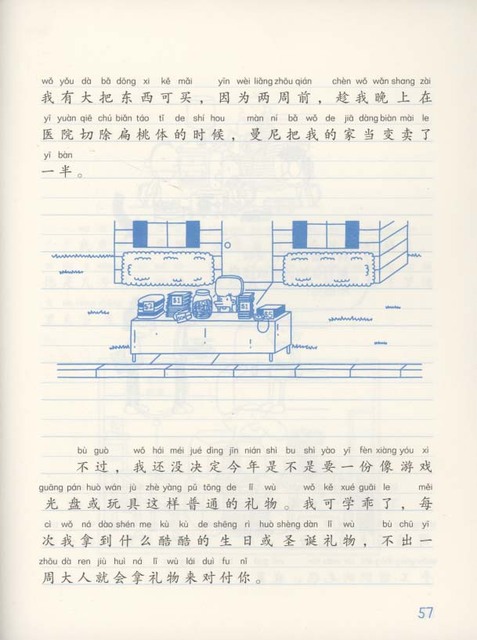 wǒ yǒu dà bǎ dōng xi kě mǎi yīn wèi liǎng zhōu qián chèn wǒ wǎn shang zài
我有大把东西可买，因为两周前，趁我晚上在
yī yuàn qiē chú biǎn táo tǐ de shí hou màn ní bǎ wǒ de jiā dàng biàn mài le
医院切除扁桃体的时候，曼尼把我的家当变卖了
yí bàn
一半。
bú guò wǒ hái méi jué dìng jīn nián shì bu shì yào yí fèn xiàng yóu xì
不过，我还没决定今年是不是要一份像游戏
guāng pán huò wán jù zhè yàng pǔ tōng de lǐ wù wǒ kě xué guāi le měi
光盘或玩具这样普通的礼物。我可学乖了，每
cì wǒ ná dào shén me kù kù de shēng rì huò shèng dàn lǐ wù bù chū yì
次我拿到什么酷酷的生日或圣诞礼物，不出一
zhōu dà rén jiù huì ná lǐ wù lái duì fu nǐ
周大人就会拿礼物来对付你。
57